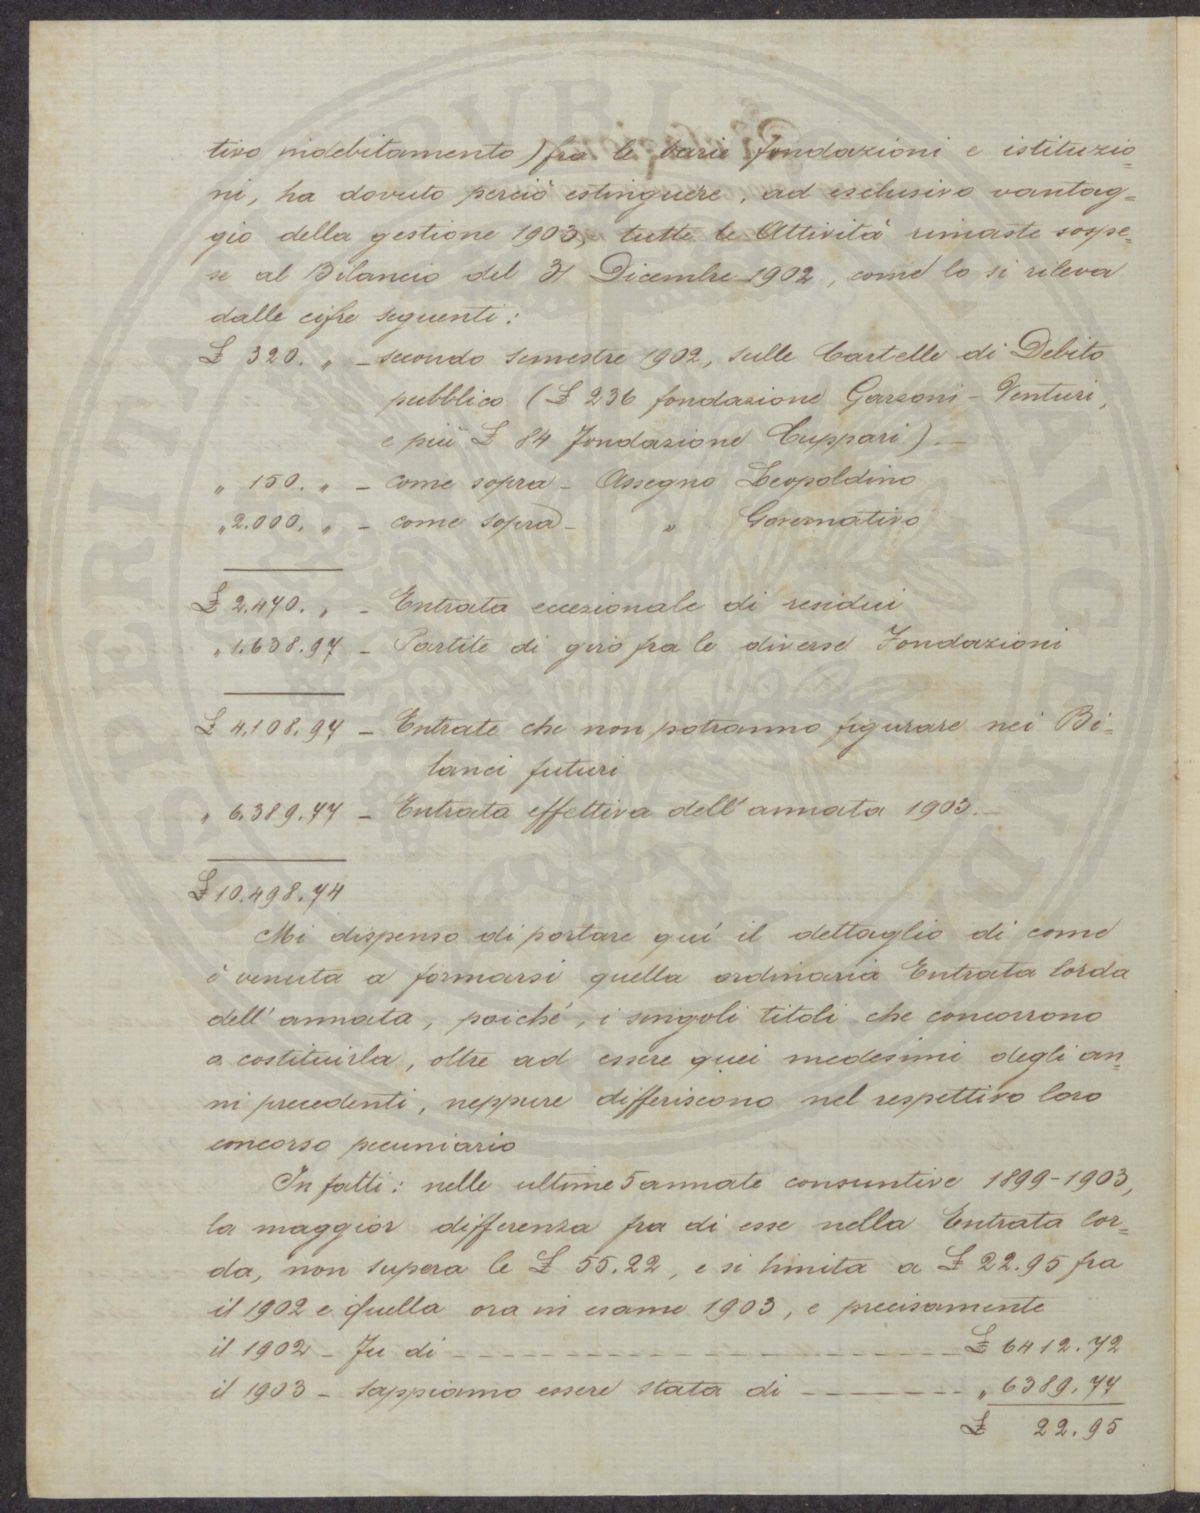 tivo indebitamento) fra le varie fondazioni e istituzio=
ni, ha dovuto perciò estinguere, ad esclusivo vantag=
gio della gestione 1903, tutte le Attività rimaste sospe=
se al Bilancio del 31 Dicembre 1902, come lo si rileva
dalle cifre seguenti:
£ 320. „ – secondo semestre 1902, sulle Cartelle di Debito
pubblico (£ 236 fondazione Garzoni-Venturi,
e più £ 84 Fondazione Cuppari). –
„ 150. „ – come sopra – Assegno Leopoldino
„ 2.000. „ – come sopra – „ Governativo
£ 2.470. „ – Entrata eccezionale di residui
„ 1.638.97 – Partite di giro fra le diverse Fondazioni
£ 4.108.97 – Entrate che non potranno figurare nei Bi=
lanci futuri
„ 6.389.77 – Entrata effettiva dell'annata 1903. –
£ 10.498.74
Mi dispenso di portare quì il dettaglio di come
è venuta a formarsi quella ordinaria Entrata lorda
dell'annata, poichè, i singoli titoli che concorrono
a costituirla, oltre ad essere quei medesimi degli an=
ni precedenti, neppure differiscono nel respettivo loro
concorso pecuniario
In fatti: nelle ultime 5 annate consuntive 1899-1903,
la maggior differenza fra di esse nella Entrata lor=
da, non supera le £ 55.22, e si limita a £ 22.95 fra
il 1902 e quella ora in esame 1903, e precisamente
il 1902 – Fu di – – – – – – – – – – £ 6412.72
il 1903 – sappiamo essere stata di – – – – – – „ 6389.77
£ 22.95